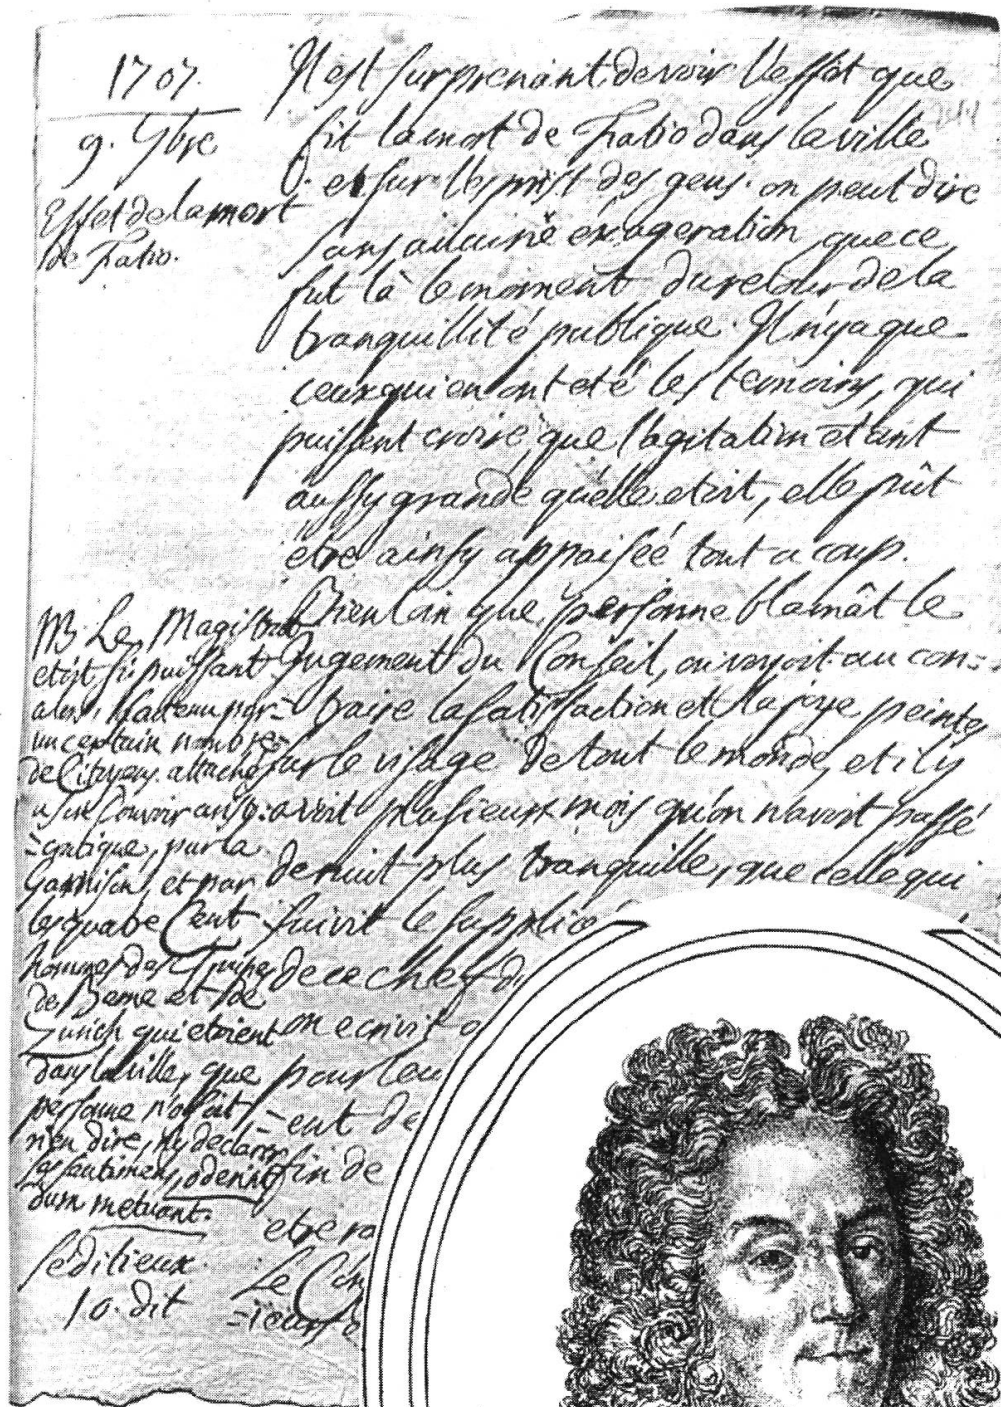 1707.
9. 7bre
Effet de la mort
de Fatio.
Il est surprenant de voir l'effet que
fit la mort de Fatio dans la ville
et sur l'esprit des gens. on peut dire
sans aucune exageration, que ce
fut là le moment du retour de la
tranquillité publique. Il n'y a que
ceux qui en ont eté les temoins, qui
puissent croire, que l'agitation étant
aussy grande qu'elle etoit, elle pût
etre ainsy appaisée tout a coup.
Bien loin que personne blamât le
Jugement du Conseil, on voyoit au con=
traire la satisfaction et la joye peintes
sur le visage de tout le monde, et il y
avoit plusieurs mois qu'on n'avoit passé
de nuit plus tranquille, que celle qui
suivit le supplice
de ce chef d
on ecrivit
pour leu
-ent de
fin de
etre ra
Le Con
-ieurs
NB. Le Magistrat
etoit si puissant
alors, soutenu par
un certain nombre
de Citoyens attachés
a son Pouvoir
par la
Garnison, et par
les quatre Cent
hommes des Troupes
de Berne et de
Zurich qui etoient
dans la ville, que
personne n'osoit
rien dire, ny declarer
ses sentimens, oderint
dum metuant.
séditieux.
10. dit